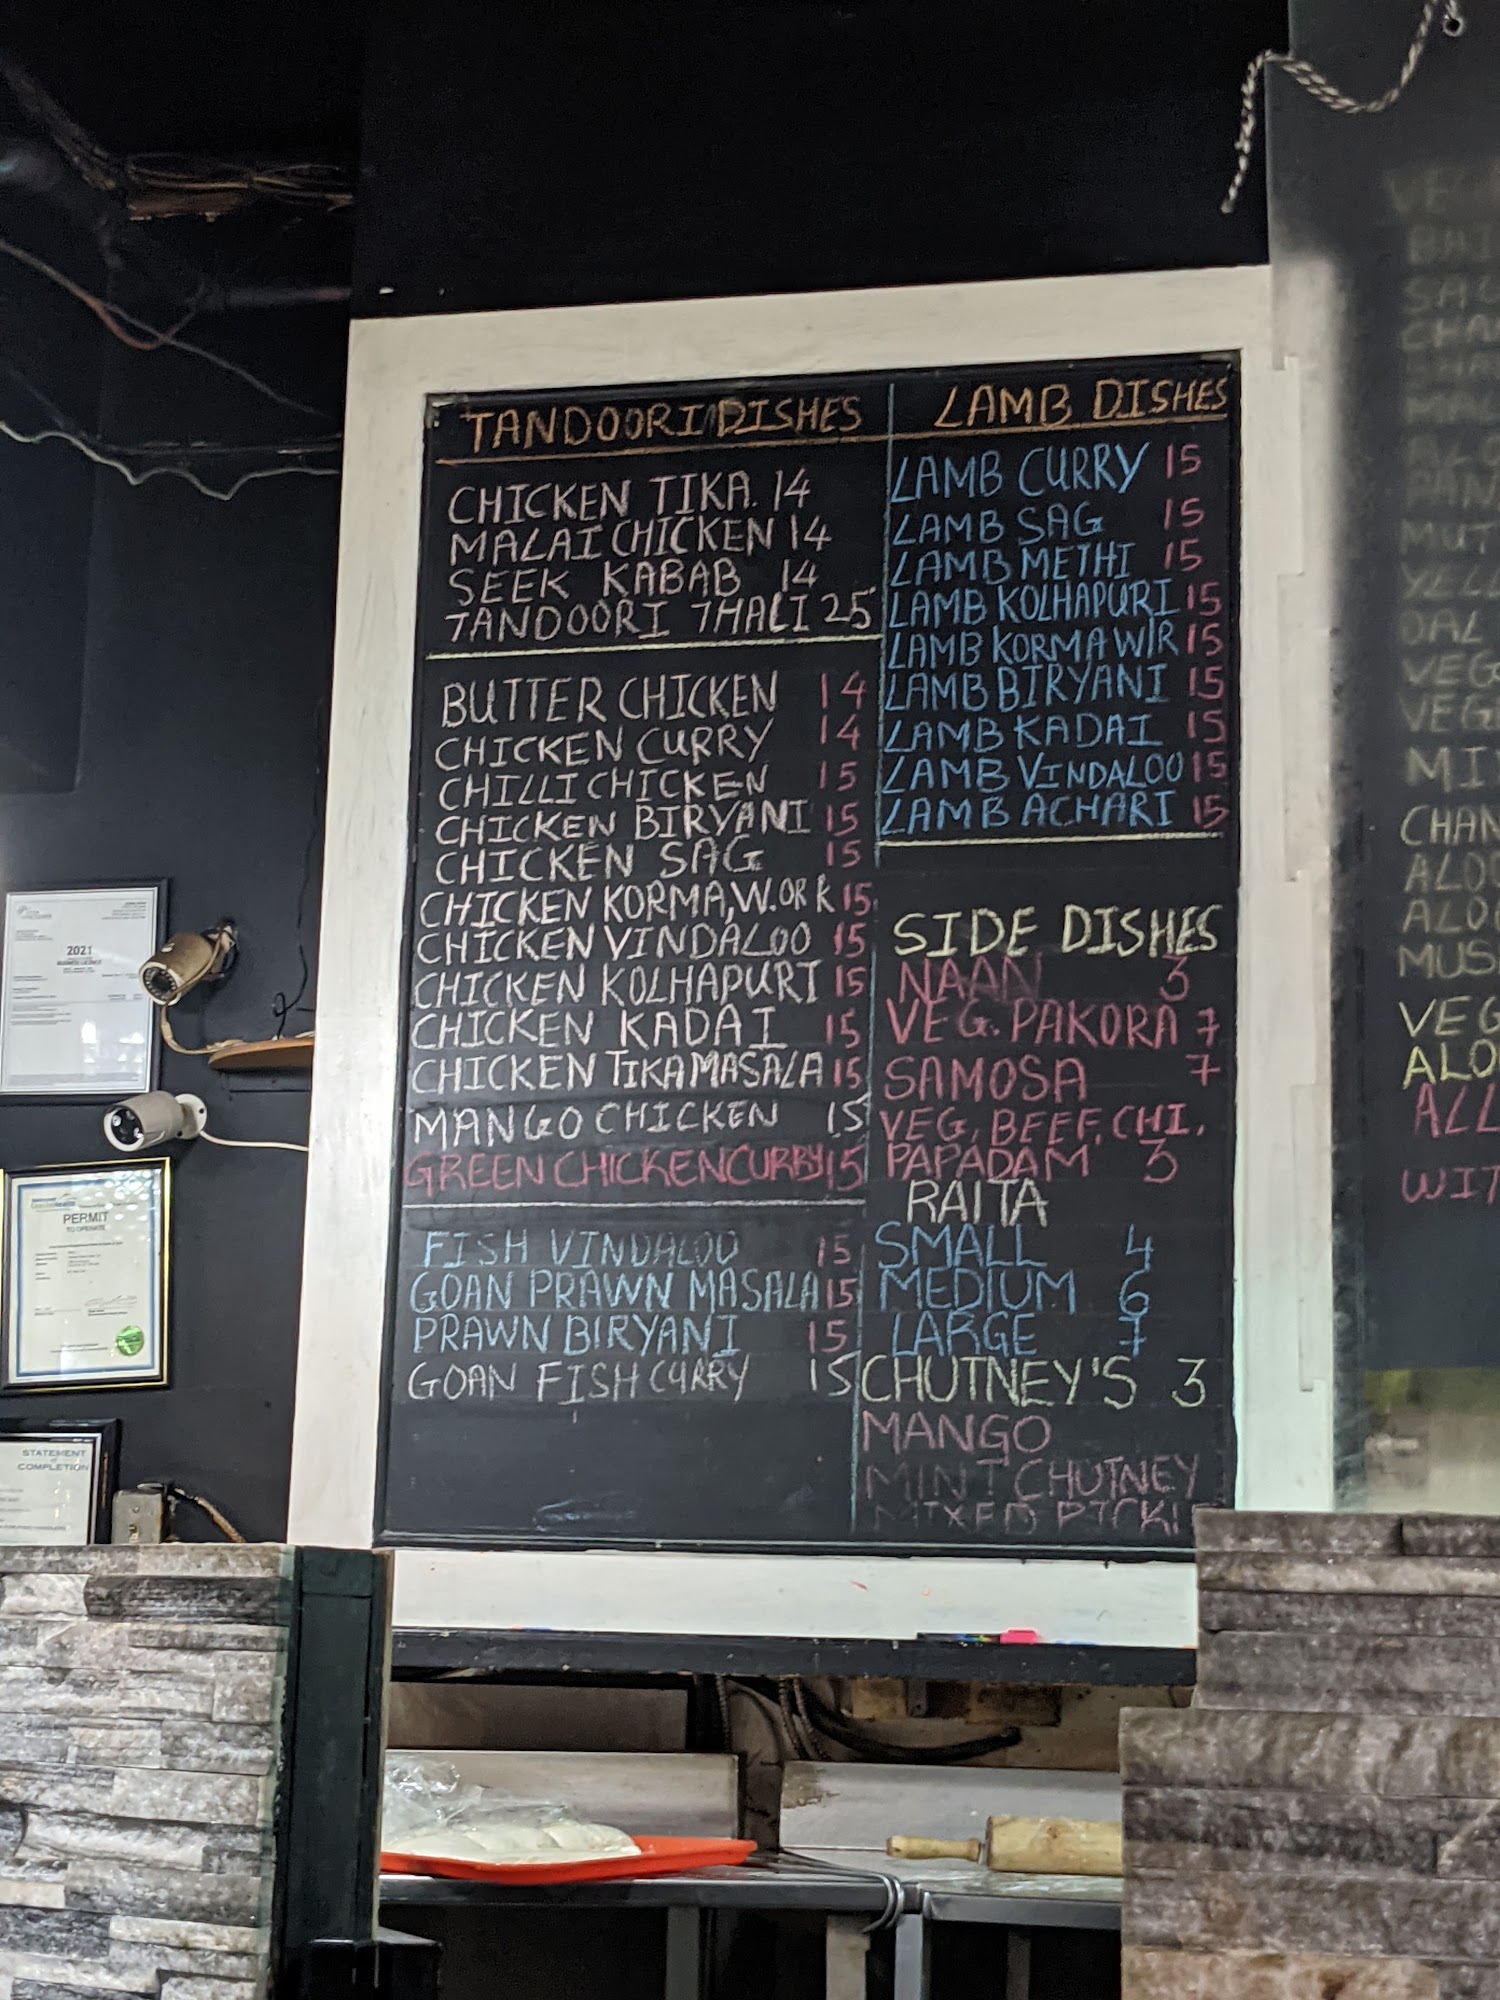 TANDOORI DISHES
CHICKEN TIKA. 14
MALAI CHICKEN 14
SEEK KABAB 14
TANDOORI THALI 25
BUTTER CHICKEN 14
CHICKEN CURRY 14
CHILLI CHICKEN 15
CHICKEN BIRYANI 15
CHICKEN SAG 15
CHICKEN KORMA, W. OR R 15
CHICKEN VINDALOO 15
CHICKEN KOLHAPURI 15
CHICKEN KADAI 15
CHICKEN TIKA MASALA 15
MANGO CHICKEN 15
GREEN CHICKEN CURRY 15
FISH VINDALOO 15
GOAN PRAWN MASALA 15
PRAWN BIRYANI 15
GOAN FISH CURRY 15
LAMB DISHES
LAMB CURRY 15
LAMB SAG 15
LAMB METHI 15
LAMB KOLHAPURI 15
LAMB KORMA W/R 15
LAMB BIRYANI 15
LAMB KADAI 15
LAMB VINDALOO 15
LAMB ACHARI 15
SIDE DISHES
NAAN 3
VEG. PAKORA 7
SAMOSA 7
VEG, BEEF, CHI.
PAPADAM 3
RAITA
SMALL 4
MEDIUM 6
LARGE 7
CHUTNEY'S 3
MANGO
MINT CHUTNEY
MIXED PICKL
VE
BAI
MUT
YELL
DAL
VEG
VEG
MIX
CHAN
ALOO
ALO
MUS
VEG
ALO
ALL
WIT
2021
BUSINESS LICENCE
PERMIT
TO OPERATE
STATEMENT
of
COMPLETION